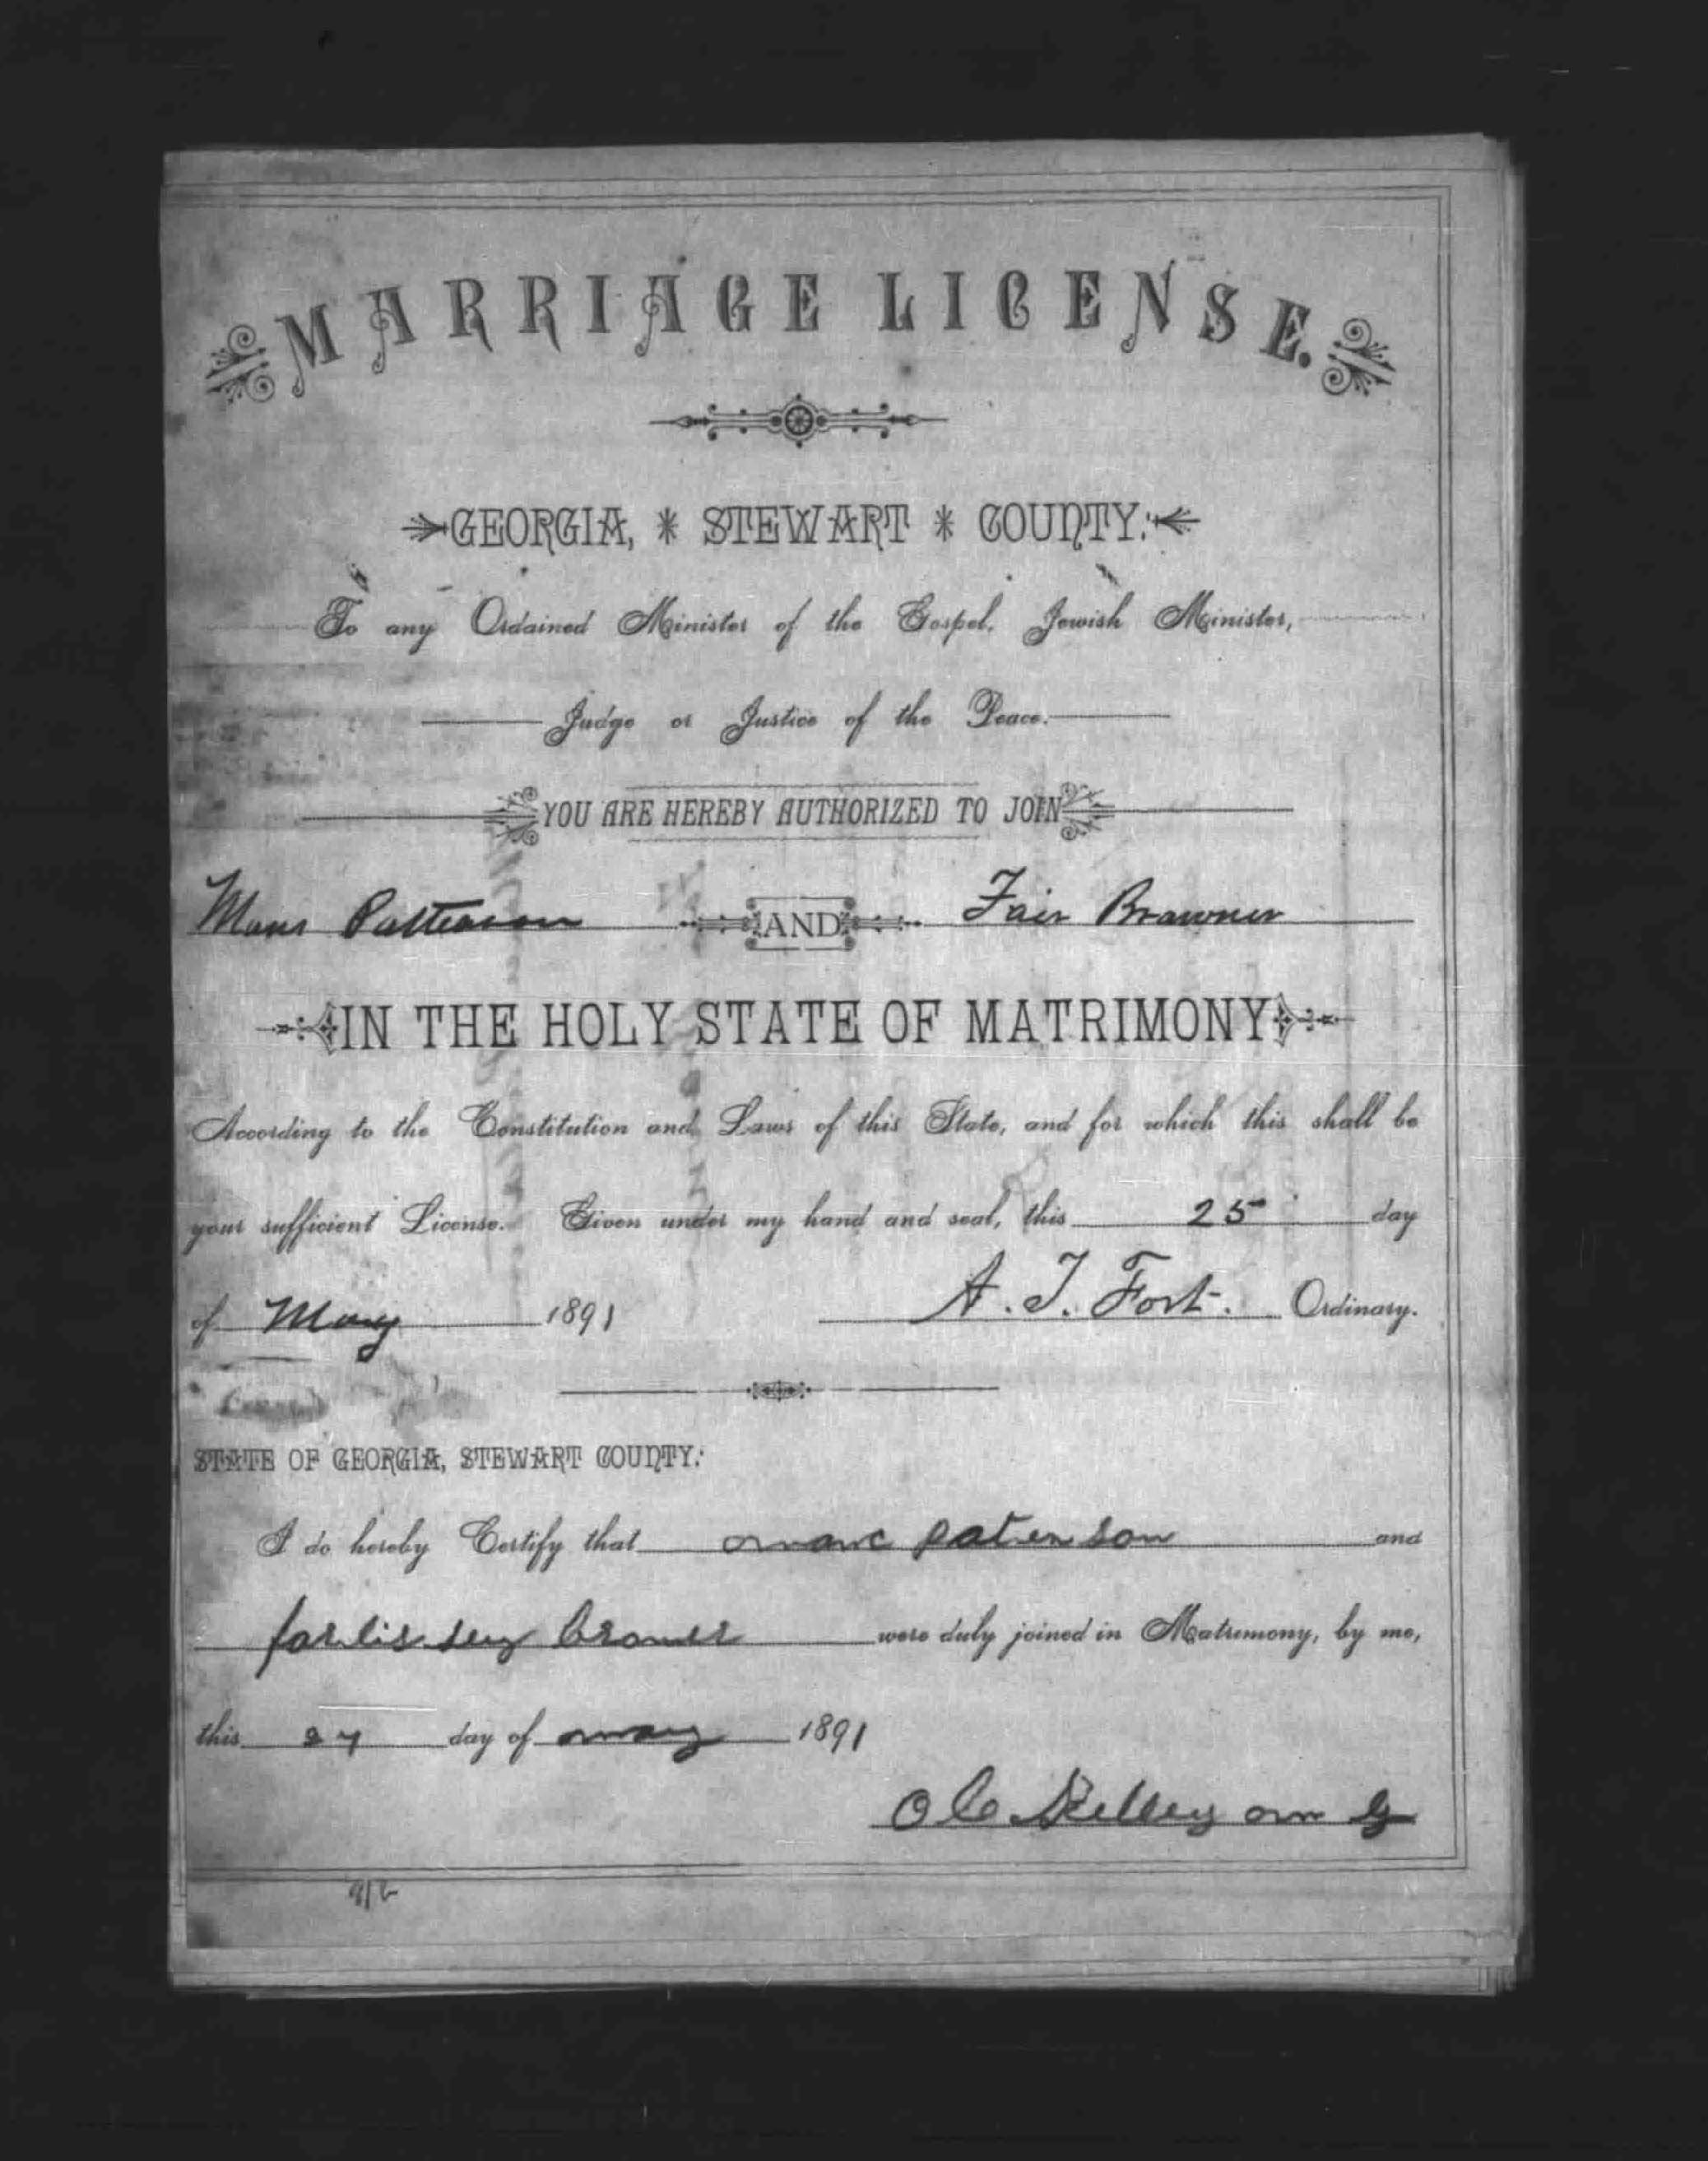 MARRIAGE LICENSE.
GEORGIA, * STEWART * COUNTY:
To any Ordained Minister of the Gospel, Jewish Minister,
Judge or Justice of the Peace.
YOU ARE HEREBY AUTHORIZED TO JOIN
Patterson AND Fair Brawner
IN THE HOLY STATE OF MATRIMONY
According to the Constitution and Laws of this State, and for which this shall be
your sufficient License. Given under my hand and seal, this 25 day
of May 1891 A. T. Fort. Ordinary.
STATE OF GEORGIA, STEWART COUNTY:
I do hereby Certify that and
were duly joined in Matrimony, by me,
this 27 day of may 1891
O C Kelley